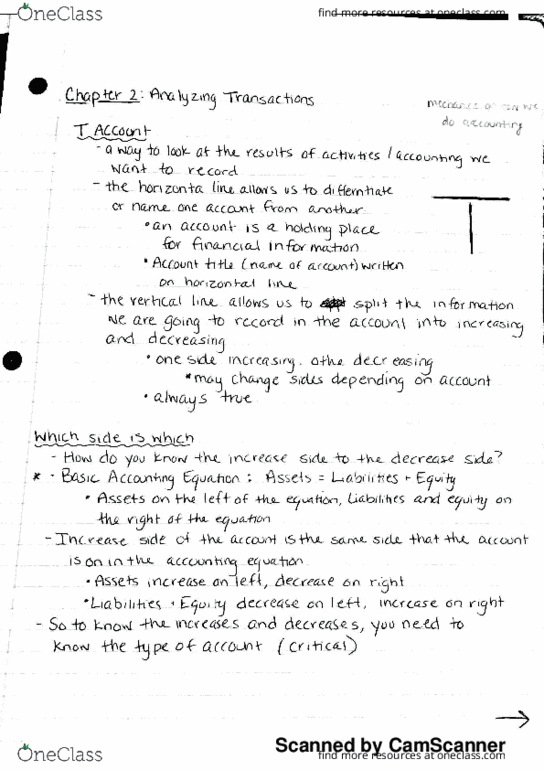 OneClass
find more resources at oneclass.com
Chapter 2: Analyzing Transactions
do accounting
T Account
- a way to look at the results of activities / accounting we
want to record
- the horizonta line allows us to differntiate
or name one account from another
• an account is a holding place
for financial information
• Account title (name of account) written
on horizontal line
- the vertical line allows us to split the information
we are going to record in the account into increasing
and decreasing
• one side increasing, othe decreasing
* may change sides depending on account
• always true
Which side is which
- How do you know the increase side to the decrease side?
* - Basic Accounting Equation: Assets = Liabilities + Equity
• Assets on the left of the equation, liabilities and equity on
the right of the equation
- Increase side of the account is the same side that the account
is on in the accounting equation
• Assets increase on left, decrease on right
• Liabilities + Equity decrease on left, increase on right
- So to know the increases and decreases, you need to
know the type of account (critical)
Scanned by CamScanner
OneClass
find more resources at oneclass.com